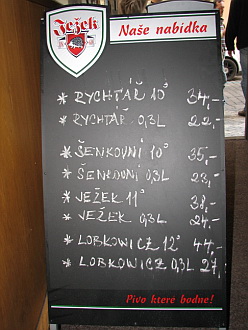 Ježek
Naše nabídka
* RYCHTÁŘ 10° 34,-
* RYCHTÁŘ 0,3L 22,-
* ŠENKOVNÍ 10° 35,-
* ŠENKOVNÍ 0,3L 23,-
* JEŽEK 11° 38,-
* JEŽEK 0,3L 24,-
* LOBKOWICZ 12° 44,-
* LOBKOWICZ 0,3L 27,-
Pivo které bodne!